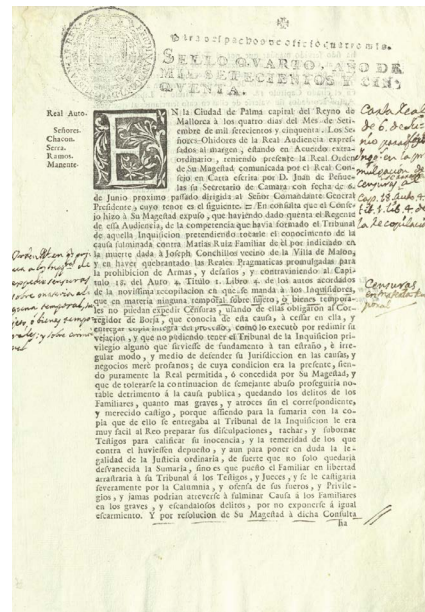 Para despachos de oficio quatro mrs.
SELLO QVARTO, AÑO DE
MIL SETECIENTOS Y CIN-
QVENTA.
Real Auto.
Señores.
Chacon.
Serra.
Ramos.
Manente.
EN la Ciudad de Palma capital del Reyno de
Mallorca à los quatro dias del Mes de Setiem-
bre de mil setecientos y cinquenta. Los Se-
ñores Ohidores de la Real Audiencia expres-
sados al margen, estando en Acuerdo extra-
ordinario, teniendo presente la Real Orden
de Su Magestad comunicada por el Real Con-
sejo en Carta escrita por D. Juan de Peñue-
las su Secretario de Camara con fecha de 6.
de Junio proximo passado dirigida al Señor Comandante General
Presidente, cuyo tenor es el siguiente. En consulta que el Conse-
jo hizo à Su Magestad expuso, que haviendo dado quenta el Regente
de essa Audiencia, de la competencia que havia formado el Tribunal
de aquella Inquisicion pretendiendo tocarle el conocimiento de la
causa fulminada contra Matias Ruiz Familiar de èl por indiciado en
la muerte dada à Joseph Conchillos vecino de la Villa de Malon,
y en haver quebrantado las Reales Pragmaticas promulgadas para
la prohibicion de Armas, y desafios, y contraviniendo al Capi-
tulo 18. del Auto 4. Titulo 1. Libro 4. de los autos acordados
de la novissima recopilacion en que se manda à los Inquisidores,
que en materia ninguna temporal sobre sujeto, ò bienes tempora-
les no puedan expedir Censuras, usando de ellas obligaron al Cor-
regidor de Borja, que conocia de esta causa, à cessar en ella, y
entregar copia integra del processo, como lo executò por redimir su
vejacion, y que no pudiendo tener el Tribunal de la Inquisicion pri-
vilegio alguno que sirviesse de fundamento à tan estraño, è irre-
gular modo, y medio de defender su Jurisdiccion en las causas, y
negocios merè profanos; de cuya condicion era la presente, sien-
do puramente la Real permitida, ò concedida por Su Magestad, y
que de tolerarse la continuacion de semejante abuso proseguiria no-
table detrimento à la causa publica, quedando los delitos de los
Familiares, quanto mas graves, y atroces sin el correspondiente,
y merecido castigo, porque assiendo para la sumaria con la co-
pia que de ello se entregaba al Tribunal de la Inquisicion le era
muy facil al Reo preparar sus disculpaciones, tachar, y subornar
Testigos para calificar su inocencia, y la temeridad de los que
contra el huviessen depuesto, y aun para poner en duda la le-
galidad de la Justicia ordinaria, de suerte que no solo quedaria
desvanecida la Sumaria, sino es que puesto el Familiar en libertad
arrastraria à su Tribunal à los Testigos, y Jueces, y se le castigaria
severamente por la Calumnia, y ofensa de sus fueros, y Privile-
gios, y jamas podrian atreverse à fulminar Causa à los Familiares
en los graves, y escandalosos delitos, por no exponerse à igual
escarmiento. Y por resolucion de Su Magestad à dicha Consulta
ha
Carta Real
de 6. de Ju-
nio
Censuras